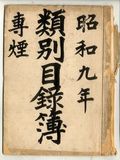 昭和九年
類別目録簿
專煙